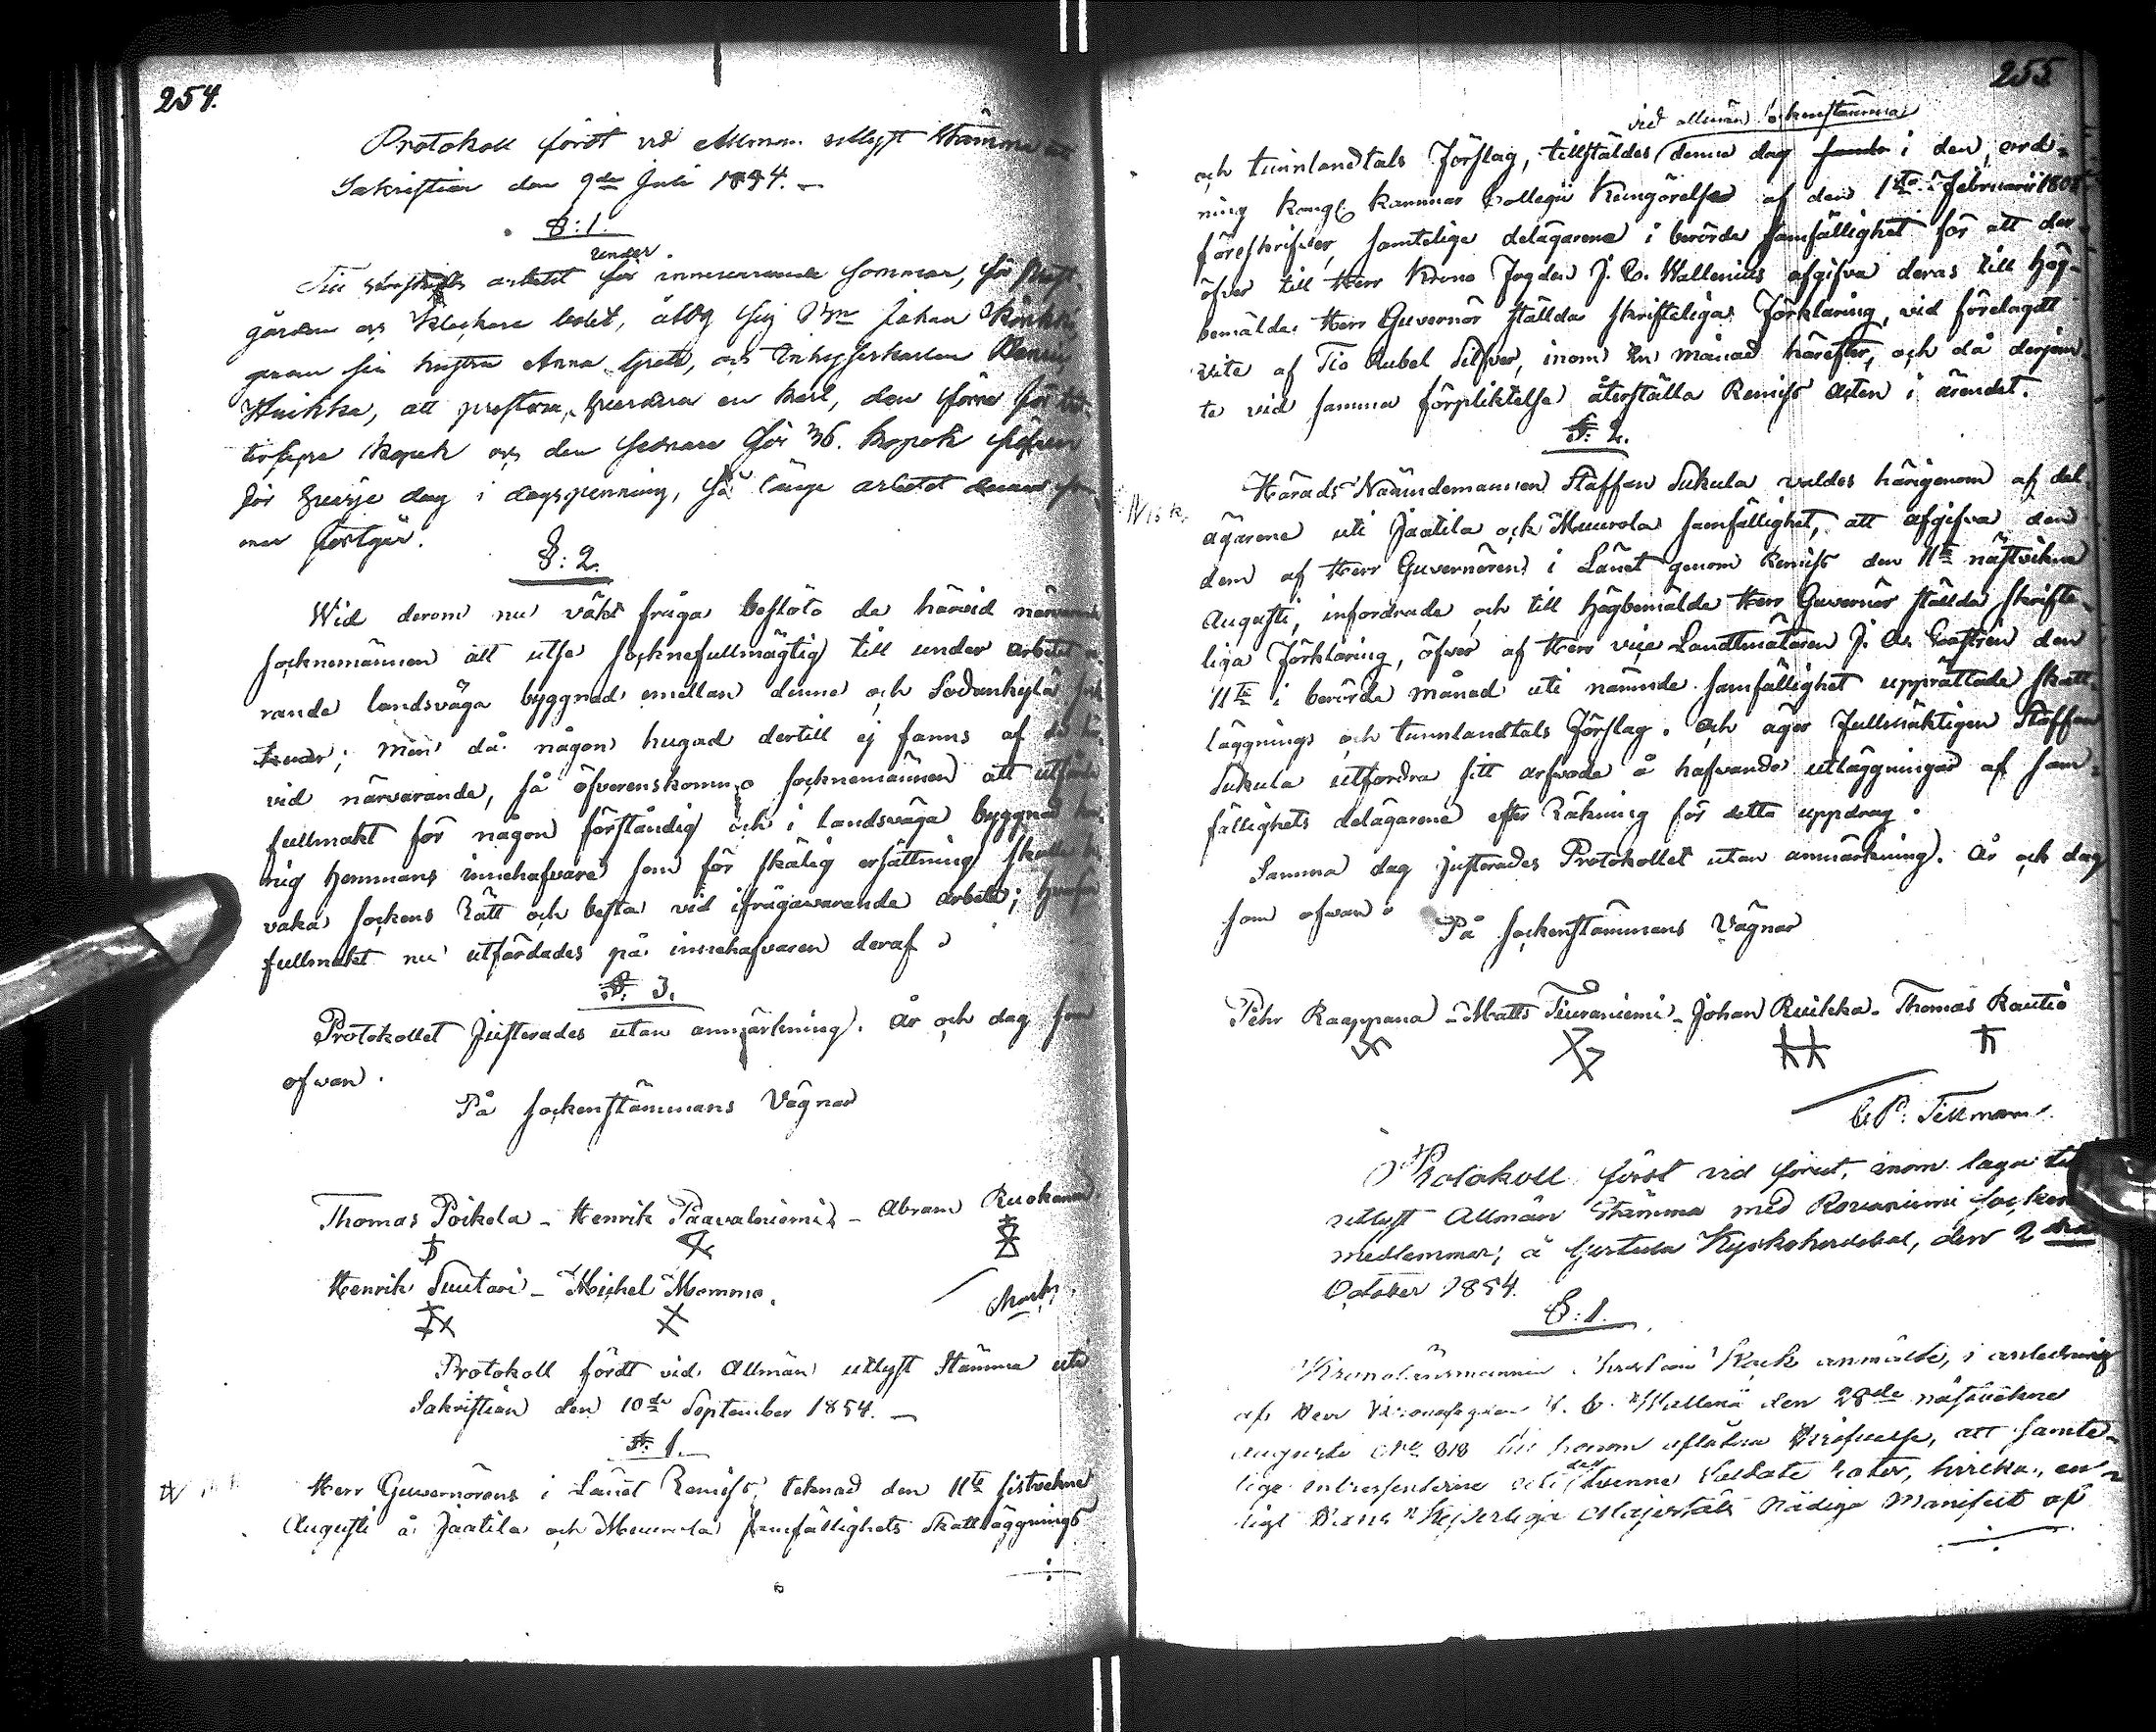 254.
Protokoll fördt vid Allmän utlyst Stämma
Sakristian den 9de Juli 1854.
§: 1.
Till arbetet under innevarande sommar, för
gården och Klockare bolet, åtog sig Johan
genom sin hustru Anna Greta, och Inhysingskarlen
att prestera, hvardera en karl, den förre för
Kopek och den sednare för 36. kopek silfver
för hvarje dag i dagspenning, så länge arbetet
fortgår.
§: 2.
Wid derom nu väkt fråga beslöto de härvid närvarande
socknemännen att utse socknefullmägtig till under arbetet
rande landsväga byggnad emellan denne och Sodankylä
men då någon hugad dertill ej fanns af de
vid närvarande, så öfverenskommo socknemännen att utfärda
fullmakt för någon förståndig och i landsväga byggnad
nig hemmans innehafvare som för skälig ersättning skulle be-
vaka sockens Rätt och bästa vid ifrågavarande arbete;
fullmakt nu utfärdades på innehafvaren deraf.
§: 3.
Protokollet justerades utan anmärkning. År och dag som
ofwan.
På Sockenstämmans Vägnar
Thomas Poikela - Henrik Paavalniemi - Abram Ruokanen
Henrik Suutari - Michel Mommo.
Protokoll fördt vid Allmän utlyst Stämma uti
Sakristian den 10de September 1854.
§: 1.
Herr Guvernörens i Länet Remiss, teknad den 11te sistvekne
Augusti å Jaatila och Muurola samfällighets Skattläggnings
255
vid allmän sockenstämma
och tunnlandtals Förslag, tillstäldes denna dag i den ord-
ning Kongl Kammar Collegii Kungörelse af den 1sta Februarii
föreskrifver, samtelige delägarena i berörde samfällighet för att der-
öfver till Herr Krono Fogden J. C. Wallenius afgifva deras till Hög-
bemälde Herr Guvernör stälda skrifteliga Förklaring, vid förelagdt
vite af Tio Rubel Silfver, inom En månad härefter, och då derjem-
te vid samma förpliktelse återställa Remiss Akten i ärendet.
§: 2.
Härads Nämndemannen Staffan Sukula valdes härigenom af del-
ägarena uti Jaatila och Muurola samfällighet, att afgifva den
dem af Herr Guvernören i Länet genom Remiss den 11te nästvikne
Augusti, infordrade och till högbemälde Herr Guvernör stälda skrifte-
liga Förklaring, öfver af Herr vice Landtmätaren J. A. Castrén den
11te i berörde månad uti nämnde samfällighet upprättade Skatt-
läggnings och tunnlandtals Förslag. Och äger Fullmäktigen Staffan
Sukula utfordra sitt arfvode å hafvande utläggningar af sam-
fällighets delägarene efter Räkning för detta uppdrag.
Samma dag justerades Protokollet utan anmärkning. År och dag
som ofwan.
På Sockenstämmans Vägnar
Pehr Raappana - Matts Tiuraniemi - Johan Ruikka - Thomas Rautio
C. P. Tillman.
Protokoll fördt vid förut, inom laga tid
utlyst Allmän Stämma med Rovaniemi sockens
medlemmar, å Gertula Kyrkoherdebol, den 2dra
October 1854.
§: 1.
Kronolänsmannen anmälte, i anledning
af Herr Kronofogden den 28de nästvekne
Augusti No 818 till honom aflåtna Skrifvelse, att samte-
lige intressenterne uti de tvenne Soldate Rotar, hvilka, en-
ligt Hans Kejserliga Majestäts Nådiga Manifest af